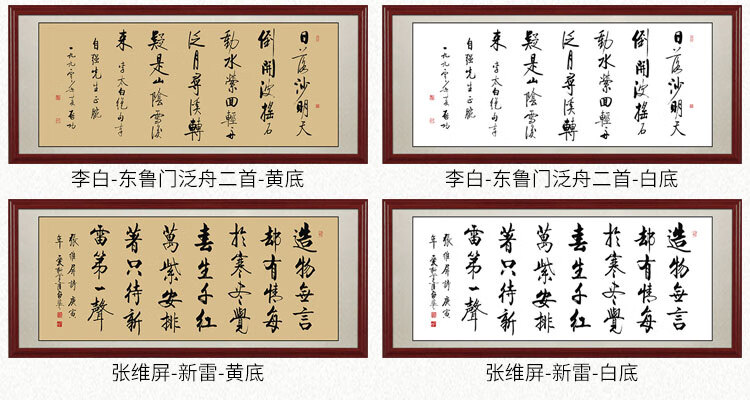 日落沙明天
倒開波搖石
動水縈回輕舟
泛月尋溪轉
疑是山陰雪後
來 李太白絕句
自強先生正腕
一九九〇年夏 啟功
李白-东鲁门泛舟二首-黄底
日落沙明天
倒開波搖石
動水縈回輕舟
泛月尋溪轉
疑是山陰雪後
來 李太白絕句
自強先生正腕
一九九〇年夏 啟功
李白-东鲁门泛舟二首-白底
造物無言
却有情每
於寒盡覺
春生千紅
萬紫安排
著只待新
雷第一聲
張維屏詩 庚寅
年
张维屏-新雷-黄底
造物無言
却有情每
於寒盡覺
春生千紅
萬紫安排
著只待新
雷第一聲
張維屏詩 庚寅
年
张维屏-新雷-白底